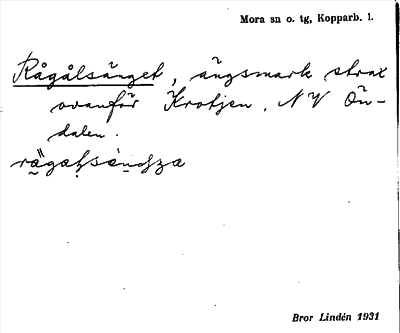 Mora sn o. tg, Kopparb. l.
Rågålsänget, ängsmark strax
ovanför Krotjen, NV Ön-
dalen.
Bror Lindén 1931